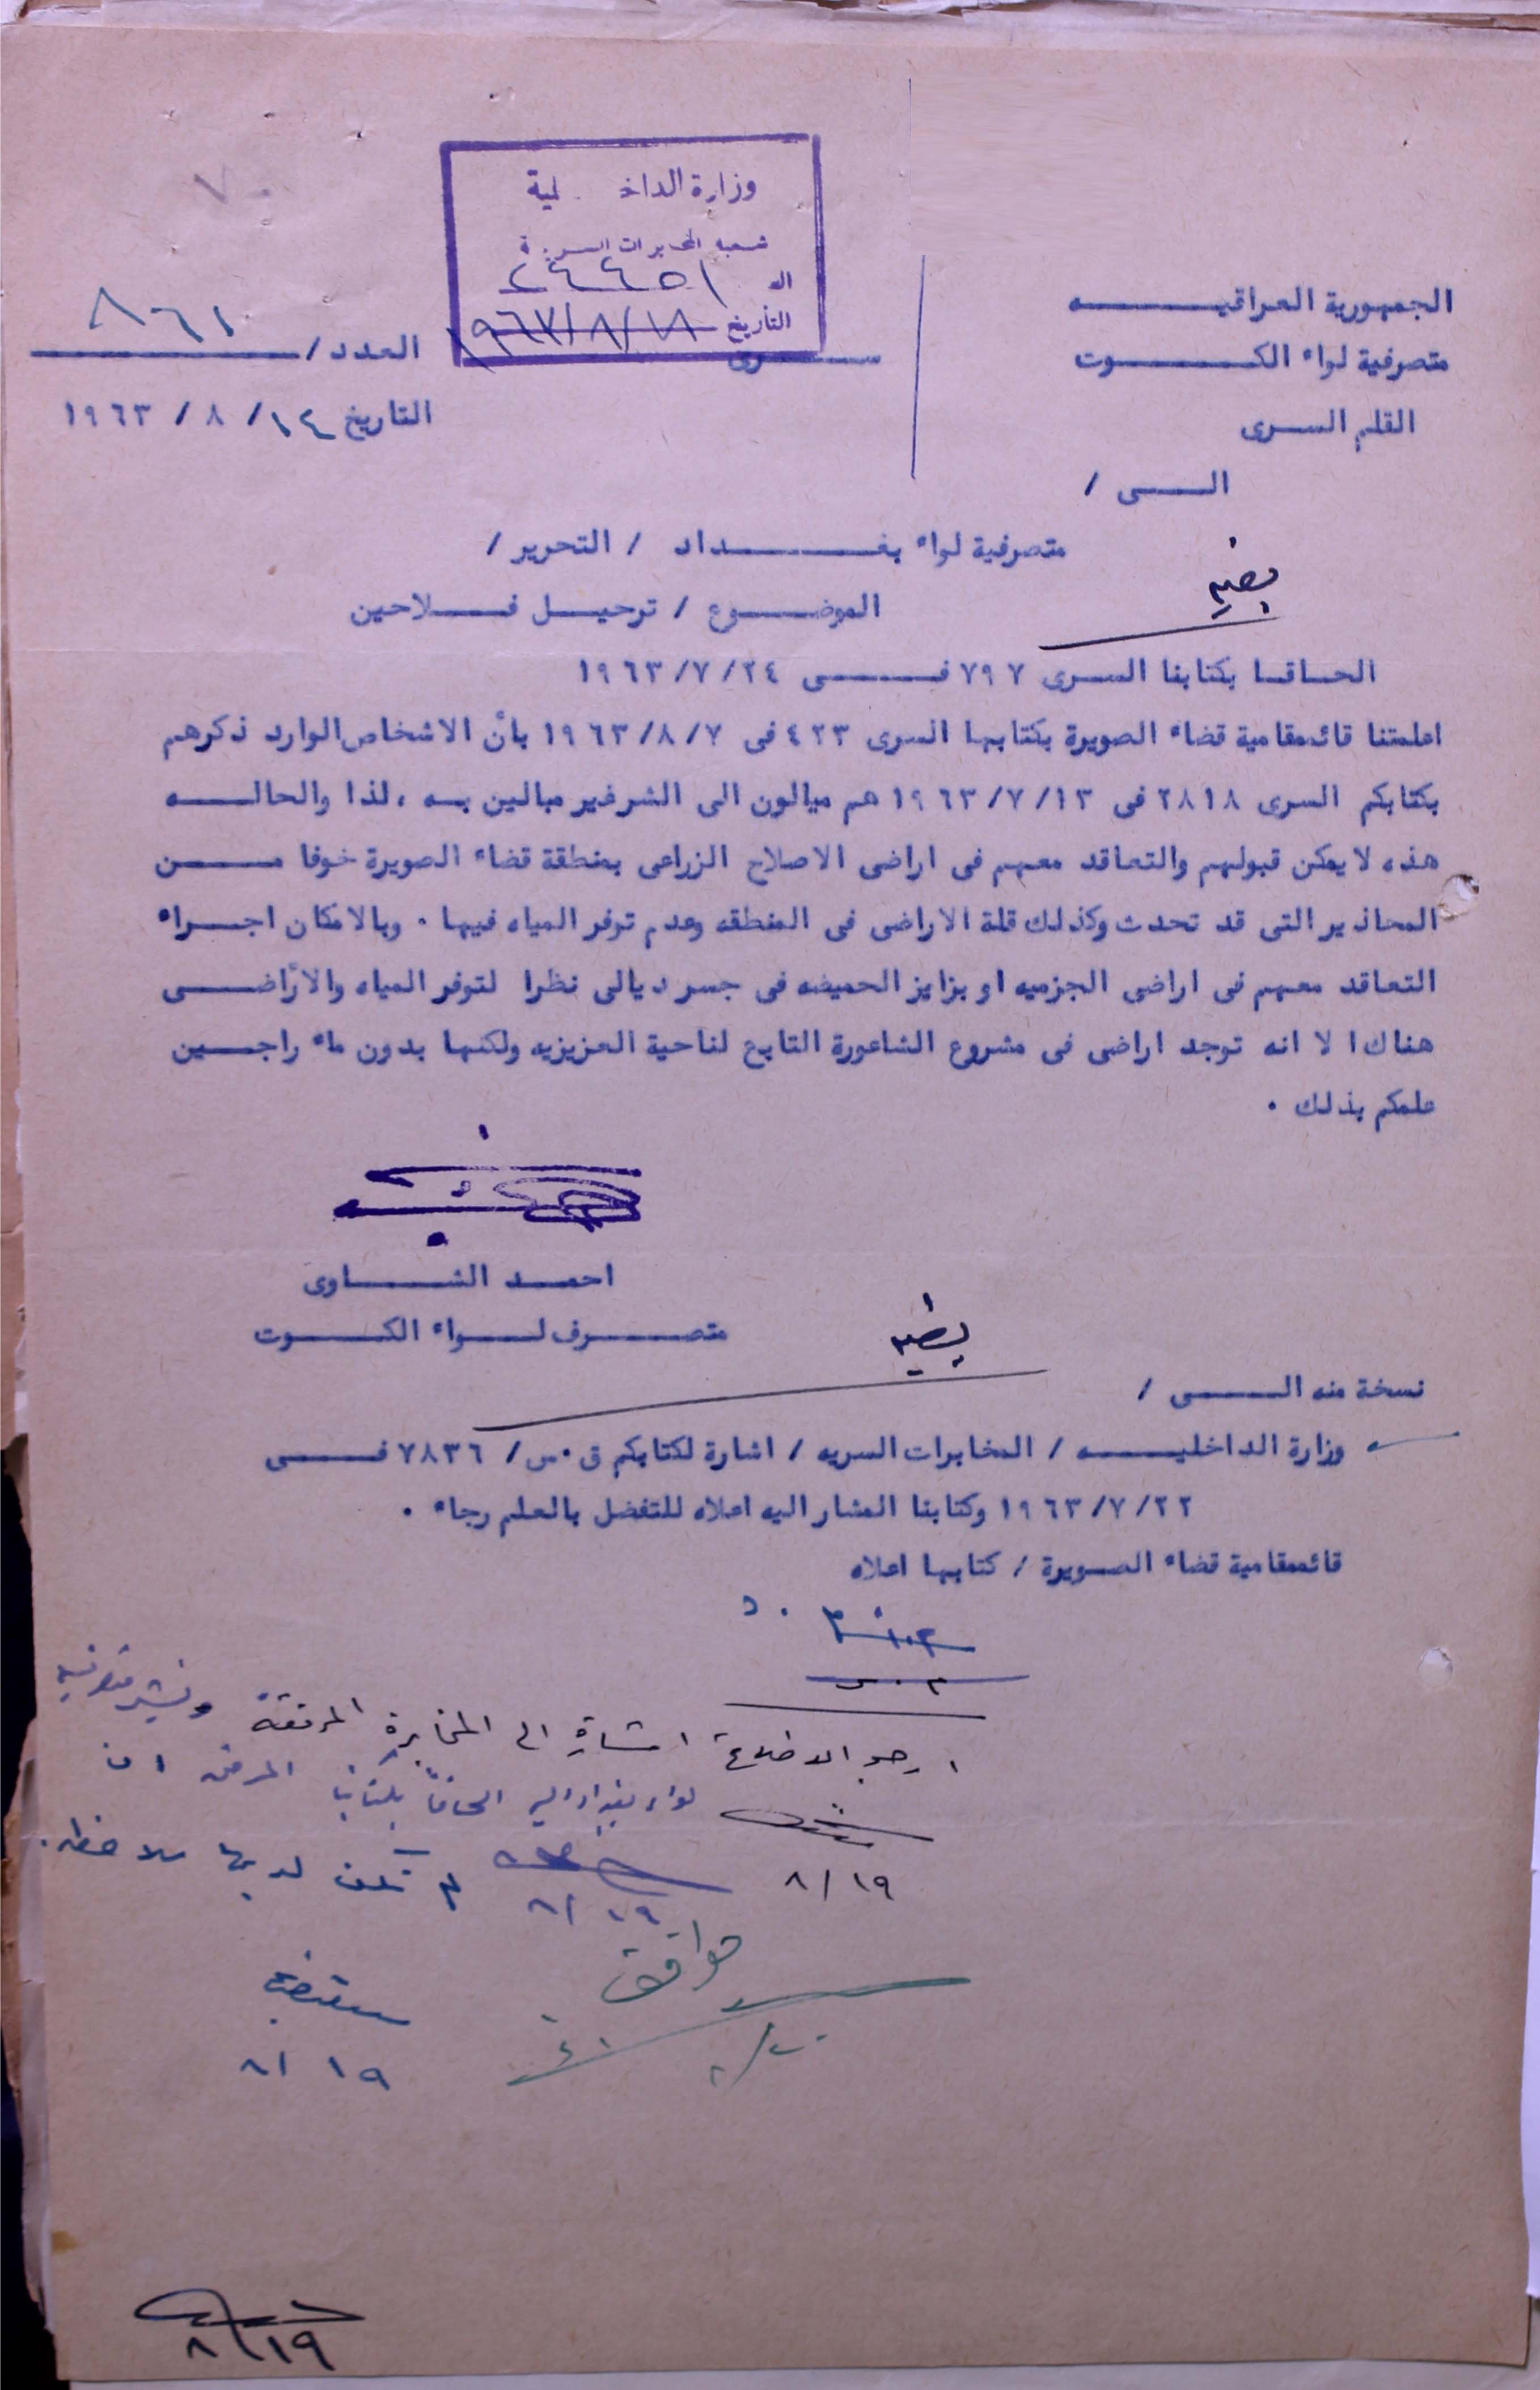 وزارة الداخلية
شعبة المخابرات السرية
٢٤٤٥١
التأريخ ١٩٦٣/٨/١٨
الجمهورية العراقيـــــه
متصرفية لواء الكـــــوت
القلم الســرى
ســـرى
العدد/ ٨٦١
التاريخ ١٤/ ٨ / ١٩٦٣
الـــى /
متصرفية لواء بغـــــداد / التحرير/
الموضـــوع / ترحيــل فـــلاحين
الحــاقــا بكتابنا الســرى ٧٩٧ فـــــى ١٩٦٣/٧/٢٤
اعلمتنا قائممقامية قضاء الصويرة بكتابها السرى ٤٢٣ فى ١٩٦٣/٨/٧ بأن الاشخاص الوارد ذكرهم
بكتابكم السرى ٢٨١٨ فى ١٩٦٣/٧/١٣ هم ميالون الى الشر غير مبالين بــه ، لذا والحالـــه
هذه لا يمكن قبولهم والتعاقد معهم فى اراضى الاصلاح الزراعى بمنطقة قضاء الصويرة خوفا مـــن
المحاذير التى قد تحدث وكذلك قلة الاراضى فى المنطقه وعدم توفر المياه فيها ٠ وبالامكان اجــراء
التعاقد معهم فى اراضى الجزميه او بزايز الحميضه فى جسر ديالى نظرا لتوفر المياه والأراضـــى
هناك ا لا انه توجد اراضى فى مشروع الشاعورة التابع لناحية العزيزيه ولكنها بدون ماء راجـــين
علمكم بذلك ٠
احمــد الشـــــاوى
متصـــــرف لـــواء الكـــــوت
نسخة منه الـــى /
وزارة الداخليـــــه / المخابرات السريه / اشارة لكتابكم ق ٠س/ ٧٨٣٦ فـــــى
١٩٦٣/٧/٢٢ وكتابنا المشار اليه اعلاه للتفضل بالعلم رجاء ٠
قائممقامية قضاء الصــويرة / كتابها اعلاه
ارجو الاطلاع اشارة الى المخابرة المرفقة
لواء بغداد الى الحاقاً بكتابنا المرفق ان
لم تكن لديها ملاحظة.
٨/١٩
٨/١٩
موافق
٨/٢٠
٨/١٩
٨/١٩